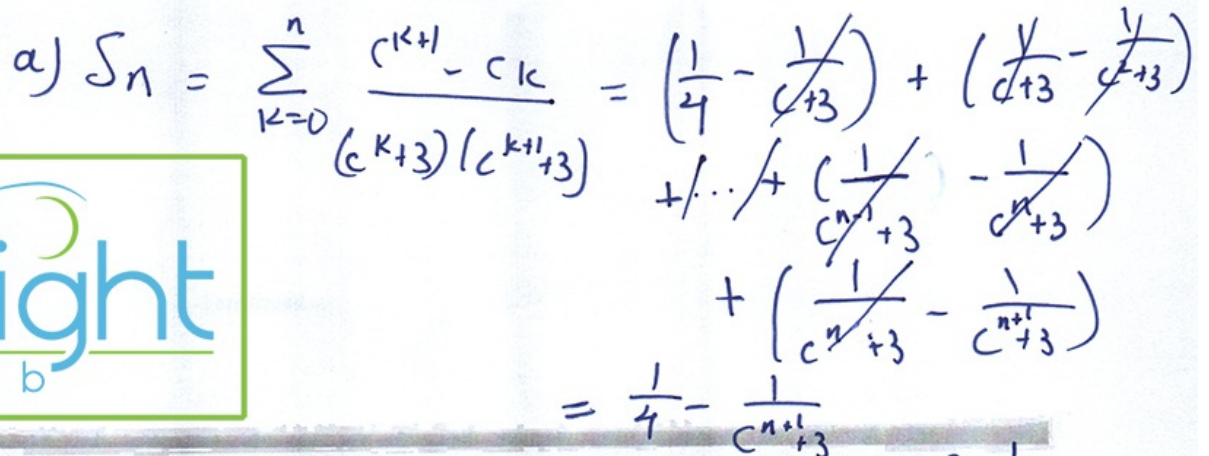 a) Sn = n∑K=0 (c^(K+1) - cK)/((c^K+3)(c^(k+1)+3)) = (1/4 - 1/(c+3)) + (1/(c+3) - 1/(c²+3))
+ ... + (1/(c^(n-1)+3) - 1/(c^n+3))
+ (1/(c^n+3) - 1/(c^(n+1)+3))
= 1/4 - 1/(c^(n+1)+3)
ight
b